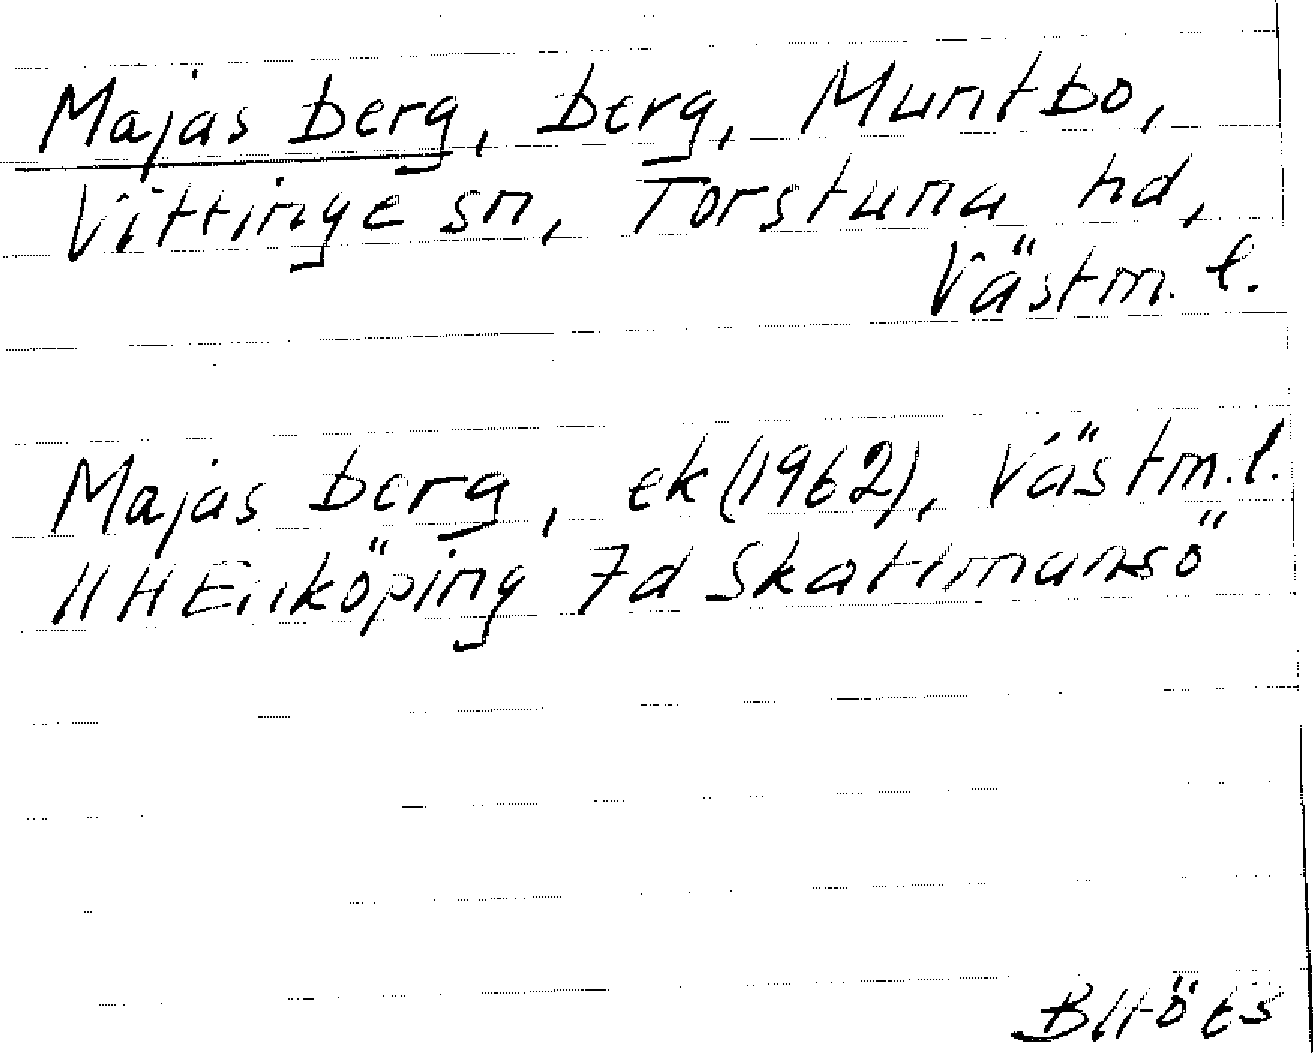 Majas berg, berg, Muntbo,
Vittinge sn, Torstuna hd,
Västm. l.
Majas berg, ek (1962), Västm. l.
11H Enköping 7d Skattmansö